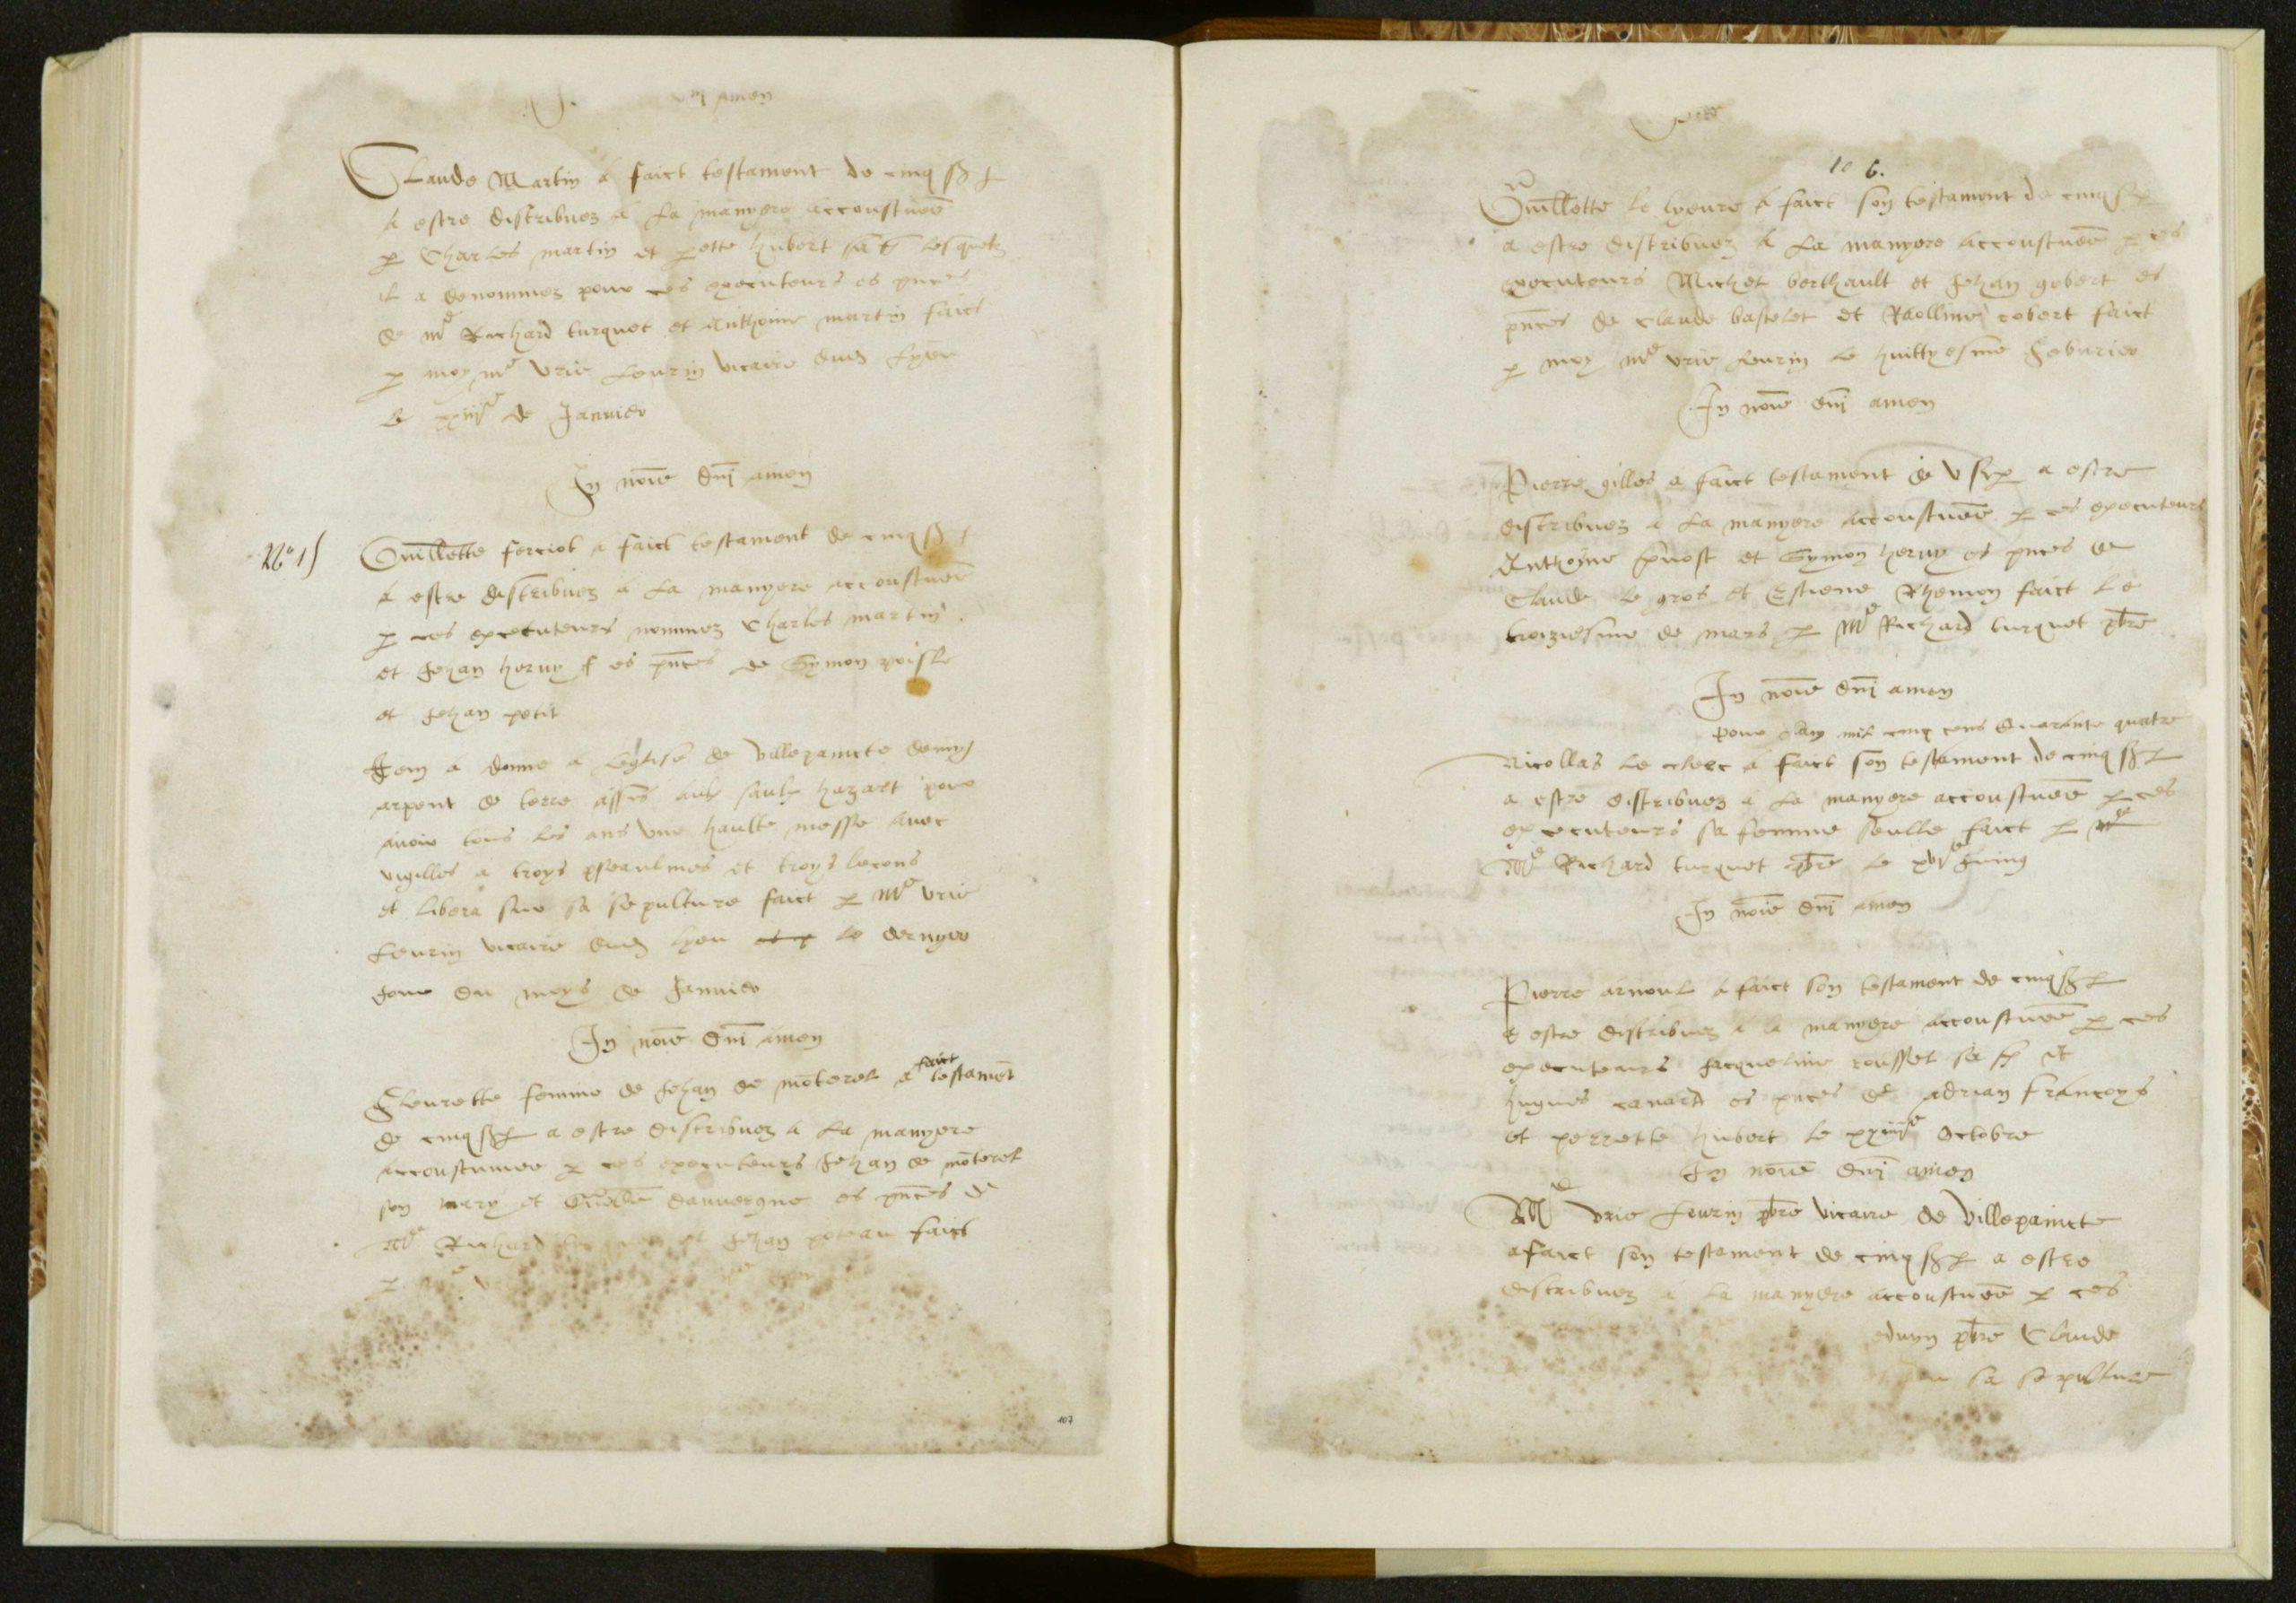 dni amen
Claude Martin a faict testament de cinq s p
a estre distribuez a la manyere accoustuee
p Charles martin et perette hubert sa f lesquelz
il a denommez pour ces executeurs es pnces
de mᵉ Richard turquet et Anthoine martin faict
p moy mᵉ Urie feurin vicaire dud lyeu
le xxiiiᵉ de Januier
In noie dni amen
Nº 15
Guillette ferciot a faict testament de cinq s p
a estre distribuez a la manyere accoustuee
p ces executeurs nommez Charles martin
et Jehan heruy es pnces de Symon poisle
et Jehan petit
Item a donne a leglise de Villepaincte demy
arpent de terre assis aux saulx hazart pour
auoir tous les ans vne haulte messe auec
vigilles a troys pseaulmes et troys lecons
et libera sur sa sepulture faict p Mᵉ Urie
feurin vicaire dud lyeu le dernyer
jour du moys de Januier
In noie dni amen
Fleurette femme de Jehan de moterel a faict testament
de cinq s p a estre distribuez a la manyere
accoustumee p ces executeurs Jehan de moterel
son mary et dauuergne es pnces de
Mᵉ Richard et Jehan poteau faict
107
106.
Guillette le lyeure a faict son testament de cinq s p
a estre distribuez a la manyere accoustuee p ces
executeurs Michel berthault et Jehan gobert es
pnces de Claude bastelet et Raolline cobert faict
p moy mᵉ Urie feurin le huittyesme feburier
In noie dni amen
Pierre gilles a faict testament de v s p a estre
distribuez a la manyere accoustuee p ces executeurs
Anthoyne puost et Symon heruy es pnces de
Claude le gros et Estiene Rhemon faict le
troiziesme de mars p Mᵉ Richard turquet pbre
In noie dni amen
pour lan mil cinq cens quarante quatre
Nicollas le clerc a faict son testament de cinq s p
a estre distribuez a la manyere accoustuee p ces
executeurs sa femme seulle faict p mᵉ
Mᵉ Richard turquet pbre le xviᵉ Juing
In noie dni amen
Pierre arnoul a faict son testament de cinq s p
a estre distribuez a la manyere accoustuee p ces
executeurs Jacqueline rousset sa f et
hugues canard es pnces de adrian francoys
et perrette hubert le xxiiiiᵉ Octobre
In noie dni amen
Mᵉ Urie feurin pbre vicaire de Villepaincte
a faict son testament de cinq s p a estre
distribuez a la manyere accoustuee p ces
pbre Claude
sa sepulture